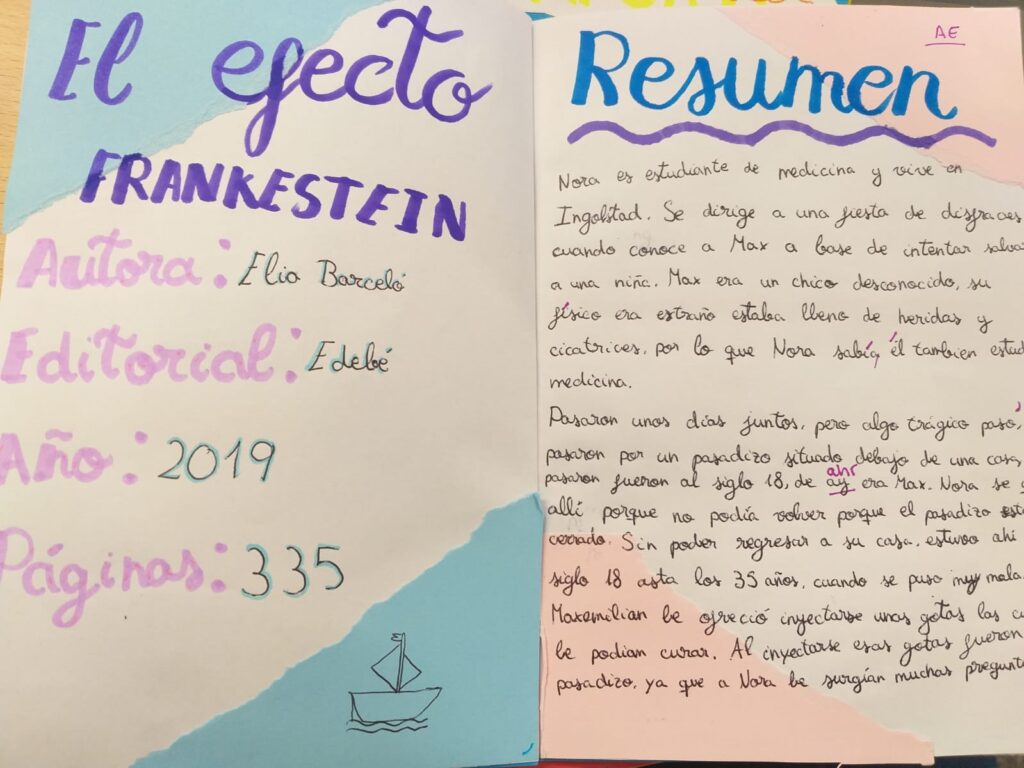 El efecto
FRANKESTEIN
Autora: Elia Barceló
Editorial: Edebé
Año: 2019
Páginas: 335
AE
Resumen
Nora es estudiante de medicina y vive en
Ingolstad. Se dirige a una fiesta de disfraces
cuando conoce a Max a base de intentar salva
a una niña. Max era un chico desconocido, su
físico era estraño estaba lleno de heridas y
cicatrices, por lo que Nora sabía, él tambien estud
medicina.
Pasaron unos días juntos, pero algo trágico pasó,
pasaron por un pasadizo situado debajo de una casa
pasaron fueron al siglo 18, de ay ahí era Max. Nora se
allí porque no podía volver porque el pasadizo esta
cerrado. Sin poder regresar a su casa, estuvo ahí
siglo 18 asta los 35 años, cuando se puso muy mala
Maxemilian le ofreció inyectarse unas gotas las cu
le podian curar. Al inyectarse esas gotas fueron
pasadizo, ya que a Nora le surgían muchas pregunt